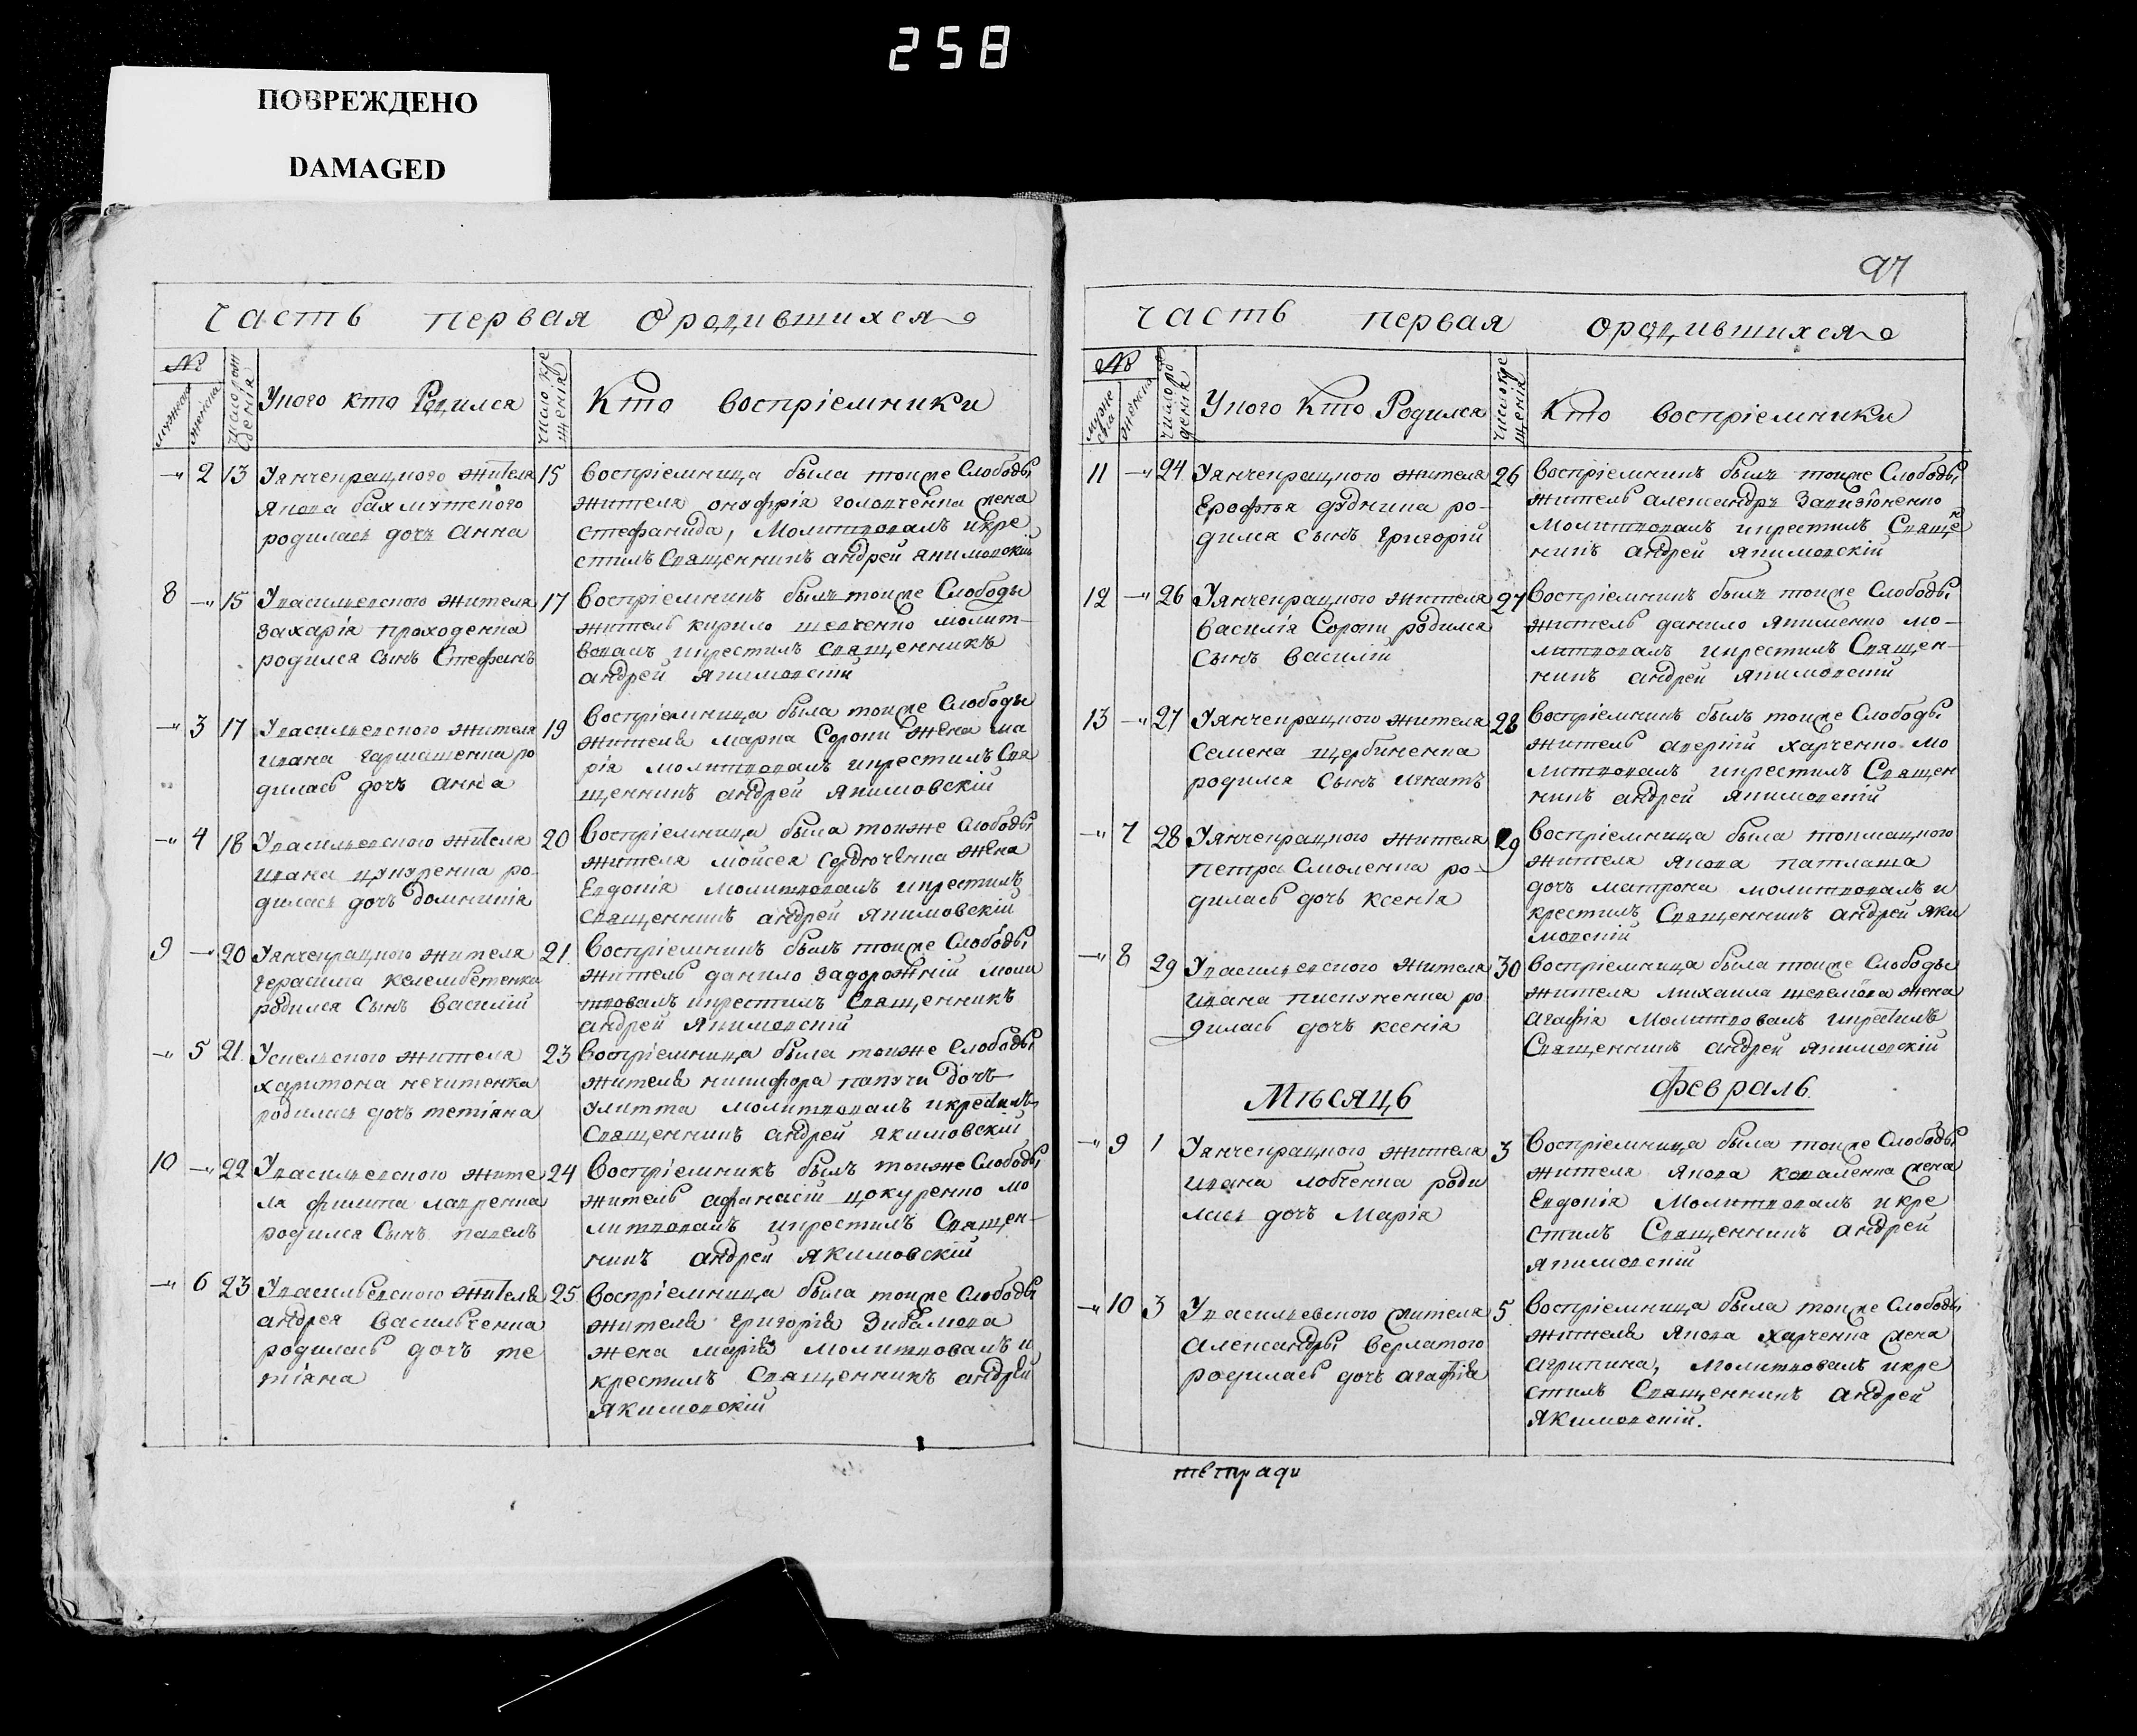 258
ПОВРЕЖДЕНО
DAMAGED
Часть первая О родившихся
№
мужеска
женска
число рождения
У кого кто Родился
число крещенія
Кто воспріемники
2 13 У янченрацкого жителя
якова бахмутского
родилась дочь Анна
15 Воспріемница была тоиже Слободы
жителя онуфрія голопченка жена
стефанида, Молитвовалъ и кре
стилъ Священникъ андрей якимовскій
8 15 У васильевского жителя
захарія проходенка
родился сынъ Стефанъ
17 Воспріемникъ былъ тоиже Слободы
житель кирило шевченко молит-
вовалъ и крестилъ священникъ
андрей якимовскій
3 17 У васильевского жителя
ивана гармашенка ро
дилась дочь Анна
19 Воспріемница была тоиже Слободы
жителя марка Сороки жена ма
рія молитвовалъ и крестилъ Свя
щенникъ андрей якимовскій
4 18 У васильевского жителя
ивана цукуренка ро-
дилась дочь домникія
20 Воспріемница была тоиже Слободы
жителя мойсея жена
Евдокія молитвовалъ и крестилъ
священникъ андрей якимовскій
9 20 У янченрацкого жителя
герасима келембетенка
родился Сынъ Василій
21 Воспріемникъ былъ тоиже Слободы
житель данило задорожній моли
твовалъ и крестилъ Священникъ
андрей якимовскій
5 21 жителя
харитона нечитенка
родилась дочь тетіяна
23 Воспріемница была тоиже Слободы
жителя никифора папучи дочь
улитта молитвовалъ и крестилъ
Священникъ андрей якимовскій
10 22 У васильевского жите
ля филипа лавренка
родился Сынъ павелъ
24 Воспріемникъ былъ тоиже Слободы
житель афанасій цокуренко мо
литвовалъ и крестилъ Священ-
никъ андрей якимовскій
6 23 У васильевского жителя
андрея Васильченка
родилась дочь те
тіяна
25 Воспріемница была тоиже Слободы
жителя григорія
жена марія молитвовалъ и
крестилъ Священникъ андрей
якимовскій
97
Часть первая о родившихся
№
мужеска
женска
число рождения
У кого Кто Родился
число крещенія
Кто воспріемники
11 24 У янченрацкого жителя
Ерофѣя дудника ро-
дился сынъ григорій
26 Воспріемникъ былъ тоиже Слободы
житель александръ
молитвовалъ и крестилъ Священ
никъ андрей якимовскій
12 26 У янченрацкого жителя
василія Сороки родился
Сынъ Василій
27 Воспріемникъ былъ тоиже Слободы
житель данило якименко мо-
литвовалъ и крестилъ Священ-
никъ андрей якимовскій
13 27 У янченрацкого жителя
Семена щербиненка
родился Сынъ игнатъ
28 Воспріемникъ былъ тоиже Слободы
житель аверкій харченко мо
литвовалъ и крестилъ Священ
никъ андрей якимовскій
7 28 У янченрацкого жителя
петра Смоленка ро-
дилась дочь ксенія
29 Воспріемница была токмацкого
жителя якова патлаша
дочь матрона молитвовалъ и
крестилъ Священникъ андрей яки
мовскій
8 29 У васильевского жителя
ивана пискуненка ро
дилась дочь ксенія
30 Воспріемница была тоиже Слободы
жителя михаила шевелiова жена
Агафія Молитвовалъ и крестилъ
Священникъ андрей якимовскій
Мѣсяцъ Февраль
9 1 У янченрацкого жителя
ивана лобченка роди
лась дочь Марія
3 Воспріемница была тоиже Слободы
жителя якова коваленка жена
Евдокія Молитвовалъ и кре
стилъ Священникъ андрей
якимовскій
10 3 У васильевского жителя
Александры верлатого
родилась дочь агафія
5 Воспріемница была тоиже Слободы
жителя якова харченка жена
агрипина, Молитвовалъ и кре
стилъ Священникъ андрей
якимовскій.
тетради